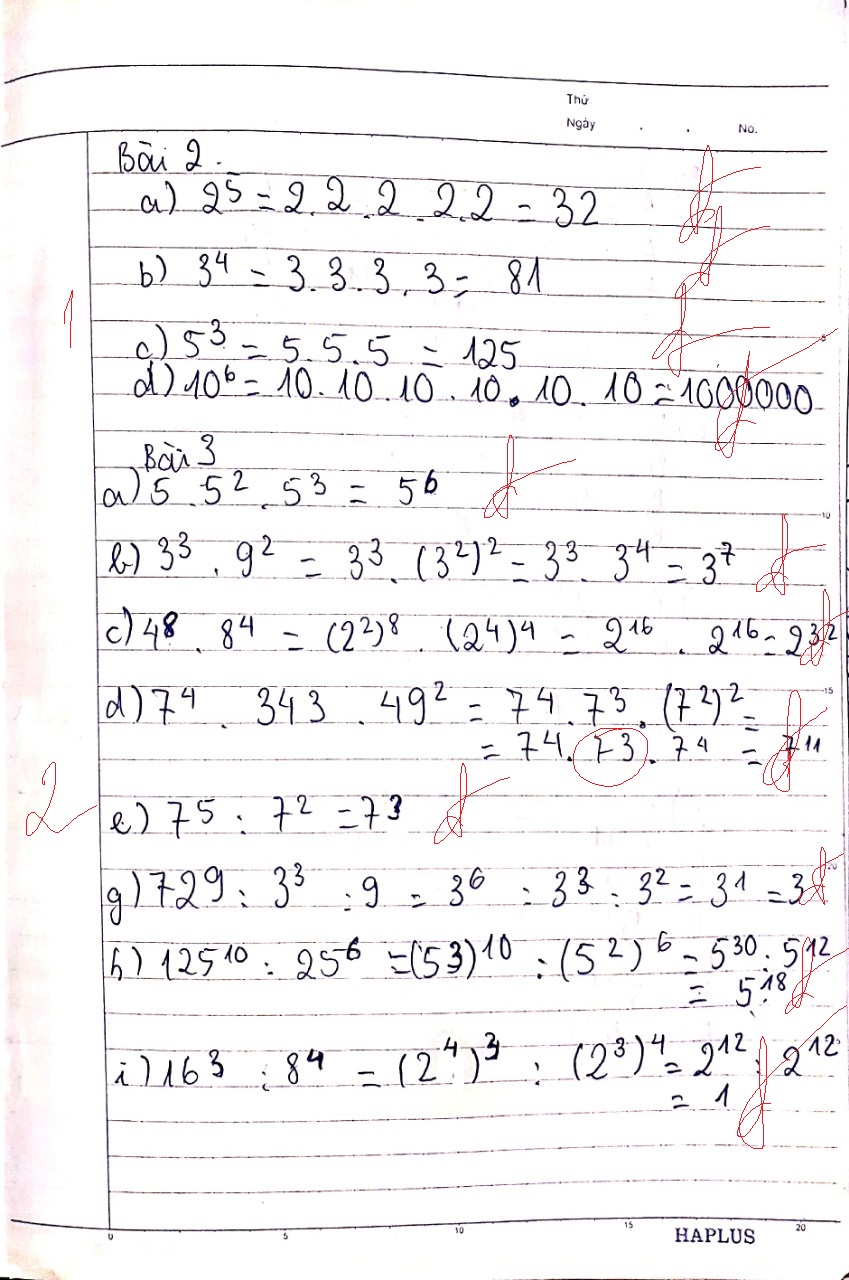 Thứ
Ngày . . No.
Bài 2.
a) 2⁵ = 2.2.2.2.2 = 32
b) 3⁴ = 3.3.3.3 = 81
1
c) 5³ = 5.5.5 = 125
d) 10⁶ = 10.10.10.10.10.10 = 1000000
Bài 3
a) 5.5².5³ = 5⁶
b) 3³.9² = 3³.(3²)² = 3³.3⁴ = 3⁷
c) 4⁸.8⁴ = (2²)⁸.(2⁴)⁴ = 2¹⁶.2¹⁶ = 2³²
d) 7⁴.343.49² = 7⁴.7³.(7²)² =
= 7⁴.7³.7⁴ = 7¹¹
2
e) 7⁵ : 7² = 7³
g) 729 : 3³ : 9 = 3⁶ : 3³ : 3² = 3¹ = 3
h) 125¹⁰ : 25⁶ = (53)¹⁰ : (5²)⁶ = 5³⁰ : 5¹²
= 5¹⁸
i) 16³ : 8⁴ = (2⁴)³ : (2³)⁴ = 2¹² : 2¹²
= 1
5
10
15
20
0 5 10 15 20
HAPLUS